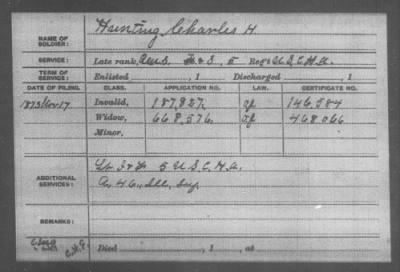 NAME OF SOLDIER: Hunting, Charles H.
SERVICE: Late rank, F & S, 5 Reg't U.S.C.H.A.
TERM OF SERVICE: Enlisted , 1 Discharged , 1
DATE OF FILING. CLASS. APPLICATION NO. LAW. CERTIFICATE NO.
1873 Nov. 17 Invalid, 187,827 146,584
Widow, 668,576 468066
Minor,
ADDITIONAL SERVICES: 5 U.S.C.H.A.
46, Ill. Inf
REMARKS:
Died , 1 , at